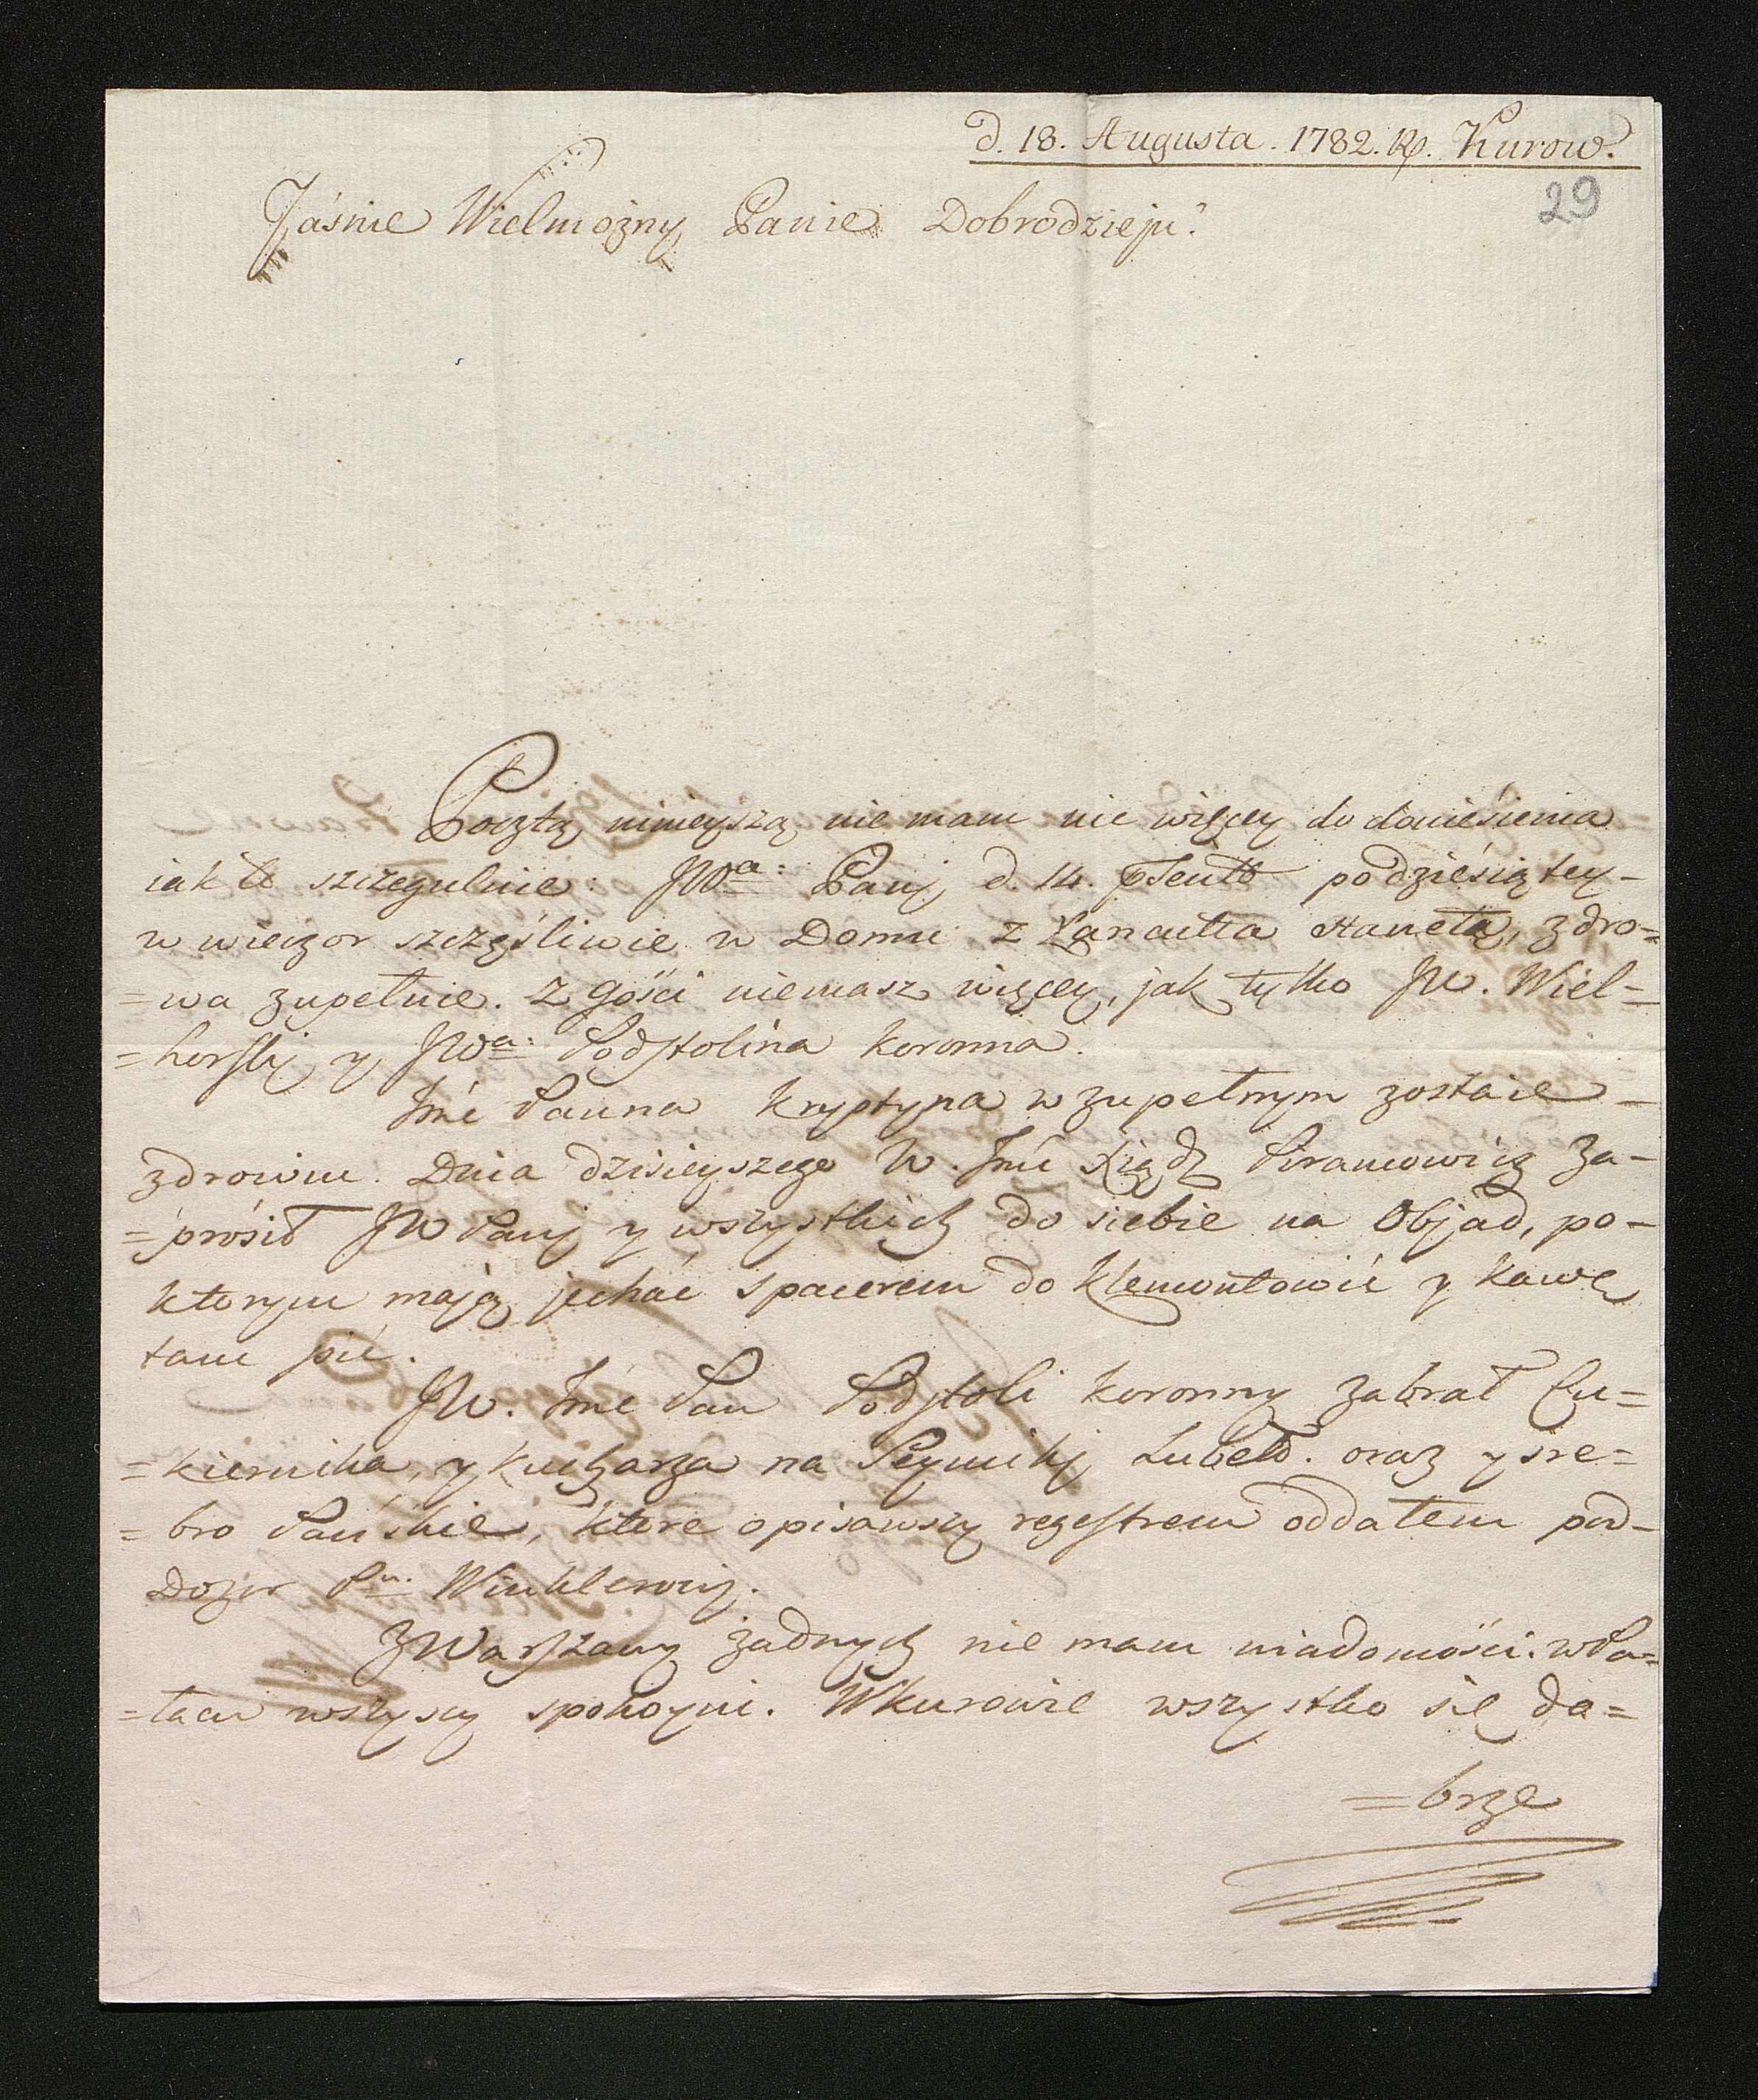 d. 18. Augusta. 1782. Ro. Kurow.
29
Jaśnie Wielmożny Panie Dobrodzieju!
Pocztą ninieyszą nie mam nic więcey do doniesienia
iak to szczegulnie: JWa: Panj d. 14. po dziesiątey
w wieczor szczęśliwie w Domu z Łancutta stanęła, zdro=
=wa zupełnie. Z gości niemasz więcey, jak tylko JW. Wiel=
=horski y JWa: Podstolina koronna.
Jmć Panna Krystyna w zupełnym zostaie
zdrowiu. Dnia dzisieyszego W. Jmć Xiądz Piramowicz za-
=prosił JW Panj y wszystkich do siebie na Objad, po-
ktorym mają jechać spacerem do Klemontowic y kawę
tam pić.
JW. Jmć Pan Podstoli koronny zabrał Cu=
=kiernika, y kucharza na Seymikj Lubels. oraz y sre=
=bro Pańskie, ktore opisawszy regestrem oddałem pod-
Dozor Pn. Winklerowj.
Z Warszawy żadnych nie mam wiadomości. w Pa=
=łacu wszyscy spokoyni. W Kurowie wszystko się do=
=brze